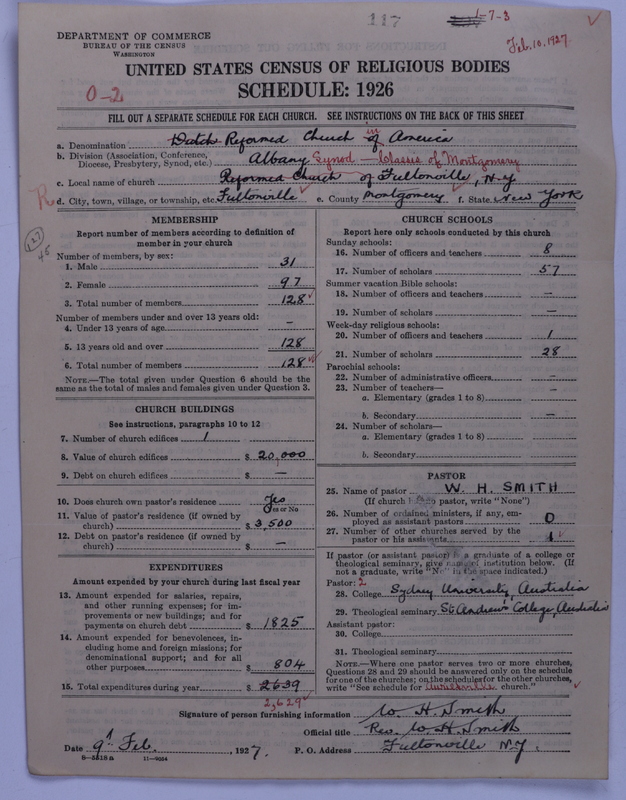 117
1-7-3
DEPARTMENT OF COMMERCE
BUREAU OF THE CENSUS
WASHINGTON
Feb. 10. 1927
UNITED STATES CENSUS OF RELIGIOUS BODIES
SCHEDULE: 1926
0-2
FILL OUT A SEPARATE SCHEDULE FOR EACH CHURCH. SEE INSTRUCTIONS ON THE BACK OF THIS SHEET
a. Denomination Dutch Reformed Church in of America
b. Division (Association, Conference, Diocese, Presbytery, Synod, etc.) Albany Synod - Classis of Montgomery
c. Local name of church Reformed Church of Fultonville, N.Y
R d. City, town, village, or township, etc. Fultonville e. County Montgomery f. State New York
127
45
MEMBERSHIP
Report number of members according to definition of
member in your church
Number of members, by sex:
1. Male 31
2. Female 97
3. Total number of members 128
Number of members under and over 13 years old:
4. Under 13 years of age –
5. 13 years old and over 128
6. Total number of members 128
NOTE.—The total given under Question 6 should be the
same as the total of males and females given under Question 3.
CHURCH BUILDINGS
See instructions, paragraphs 10 to 12
7. Number of church edifices 1
8. Value of church edifices $ 20,000
9. Debt on church edifices $ —
10. Does church own pastor's residence Yes
Yes or No
11. Value of pastor's residence (if owned by
church) $ 3,500
12. Debt on pastor's residence (if owned by
church) $ —
EXPENDITURES
Amount expended by your church during last fiscal year
13. Amount expended for salaries, repairs,
and other running expenses; for im-
provements or new buildings; and for
payments on church debt $ 1825
14. Amount expended for benevolences, in-
cluding home and foreign missions; for
denominational support; and for all
other purposes $ 804
15. Total expenditures during year $ 2639
2,629
CHURCH SCHOOLS
Report here only schools conducted by this church
Sunday schools:
16. Number of officers and teachers 8
17. Number of scholars 57
Summer vacation Bible schools:
18. Number of officers and teachers —
19. Number of scholars —
Week-day religious schools:
20. Number of officers and teachers 1
21. Number of scholars 28
Parochial schools:
22. Number of administrative officers —
23. Number of teachers—
a. Elementary (grades 1 to 8) —
b. Secondary —
24. Number of scholars—
a. Elementary (grades 1 to 8)
b. Secondary
PASTOR
25. Name of pastor W. H. SMITH
(If church has no pastor, write "None")
26. Number of ordained ministers, if any, em-
ployed as assistant pastors 0
27. Number of other churches served by the
pastor or his assistants 1
If pastor (or assistant pastor) is a graduate of a college or
theological seminary, give name of institution below. (If
not a graduate, write "No" in the space indicated.)
Pastor: 2
28. College Sydney University, Australia
29. Theological seminary St. Andrew's College, Australia
Assistant pastor:
30. College
31. Theological seminary
NOTE.—Where one pastor serves two or more churches,
Questions 28 and 29 should be answered only on the schedule
for one of the churches; on the schedules for the other churches,
write "See schedule for Auriesville church."
Signature of person furnishing information W. H. Smith
Official title Rev. W. H. Smith
Date 9th Feb., 1927. P. O. Address Fultonville N.Y.
11—9034